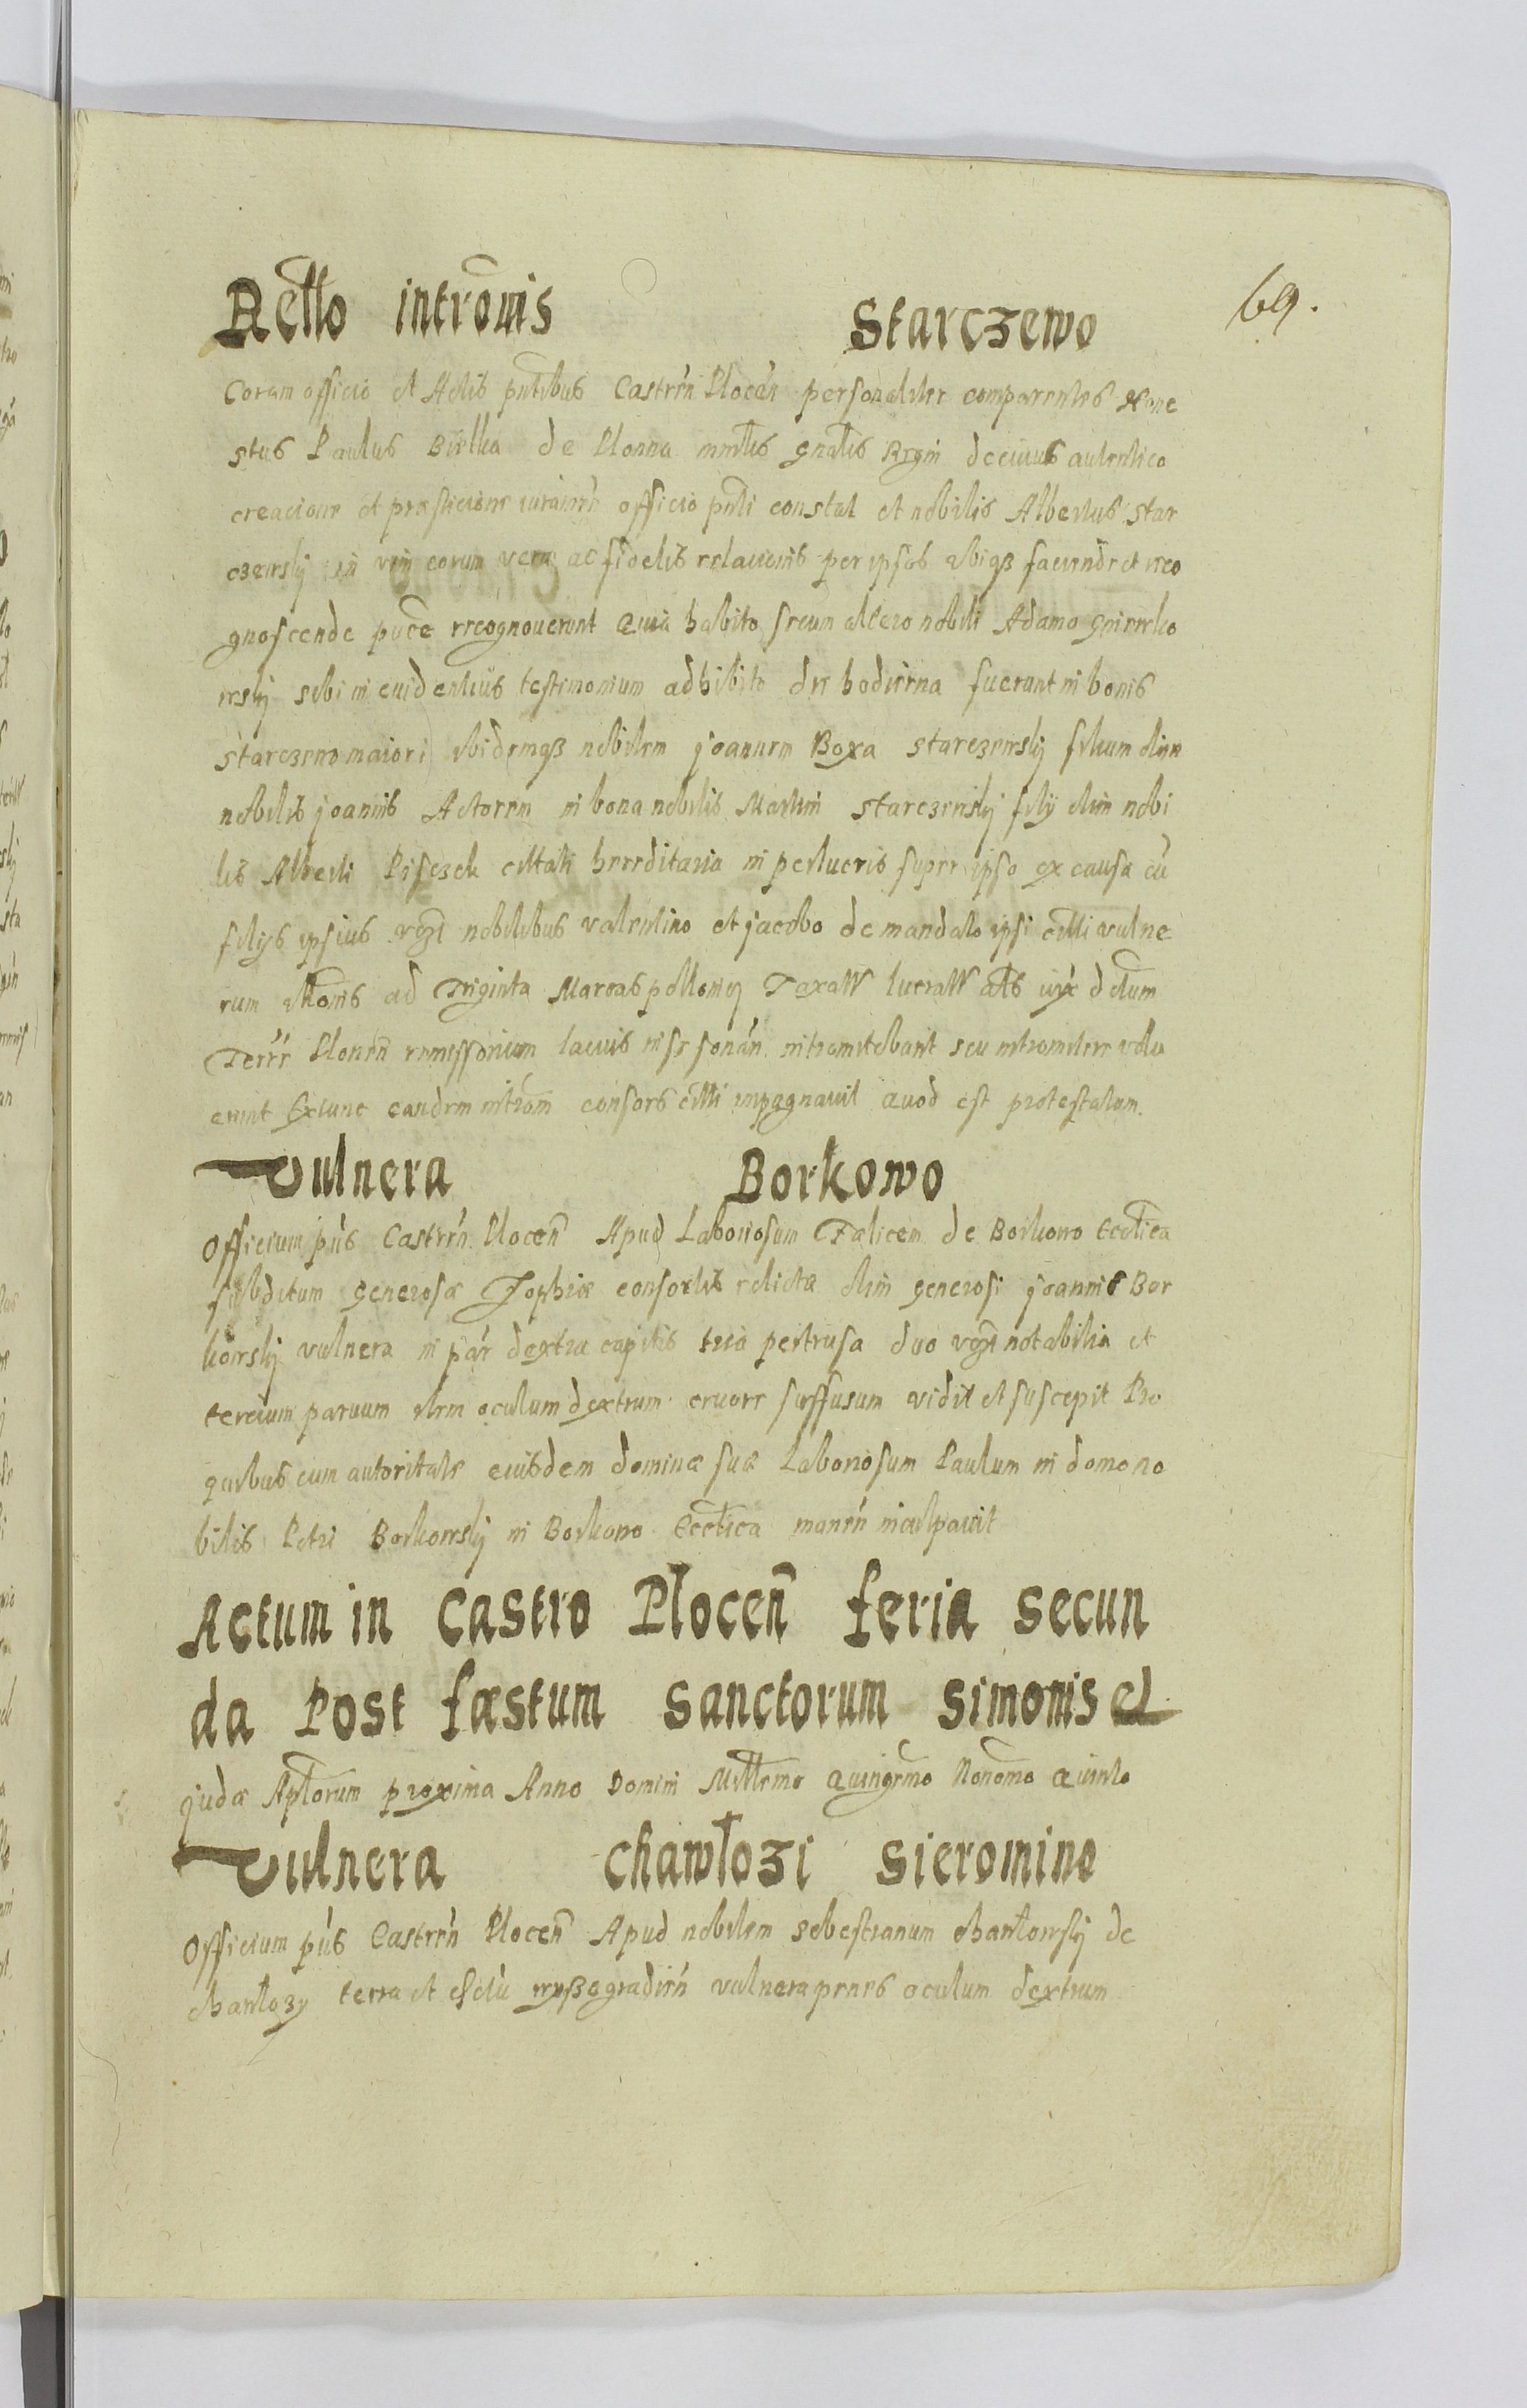 69.
Recto intromis Starczewo
Coram officio et Actis pntibus Castren Plocen personaliter comparentes Hone
stus Paulus Bielka de Plonna mnlis gnalis Regni de cuius autentico
creacione et præsticione iuramti officio pnti constat et nobilis Albertus Star
czewskj in vim eorum veræ ac fidelis relacionis per ipsos vbiqß faciendæ et reco
gnoscende pnce recognouerunt Quia habito secum altero nobili Adamo
wskj sibi in euidentius testimonium adhibito die hodierna fuerunt in bonis
Starczewo maiori ibidemqß nobilem joannem Boxa Starczewskj filium olim
nobilis joannis Actorem in bona nobilis Martini Starczewskj filij olim nobi
lis Alberti Pisczek cittati hereditaria in perlucris super ipso ex causa cu
filijs ipsius vczt nobilibus valentino et jacobo de mandato ipsi citti vulne
rum ad Triginta Marcas pollonici Taxatt lucratt als iux dctum
Terre Plonen remissorium lacius in se sonan. intromitebant seu intromitere volu
erunt Extunc eandem introm consors citti inpugnauit Quod est protestatum.
Vulnera Borkowo
Officium pns Castren Plocen Apud Laboriosum Falicem de Borkowo Ecctica
subditum generosæ Zophiæ consortis relictæ olim generosi joannis Bor
kowskj vulnera in par dextra capitis tria pertrusa duo vczt notabilia et
tercium paruum item oculum dextrum cruore suffusum vidit et suscepit Pro
quibus cum autoritate eiusdem dominæ suæ Laboriosum Paulum in domo no
bilis Petri Borkowskj in Borkowo Ecctica manen inculpauit
Actum in Castro Plocen feria secun
da Post fæstum Sanctorum Simonis et
judæ Aptorum proxima Anno Domini Millemo Quingemo Nonomo Quinto
Vulnera Chawłozi Sieromino
Officium pns Castren Plocen Apud nobilem Sebestianum Chawłowskj de
Chawłozy terra et distu wyßogradien vulnera penes oculum dextrum